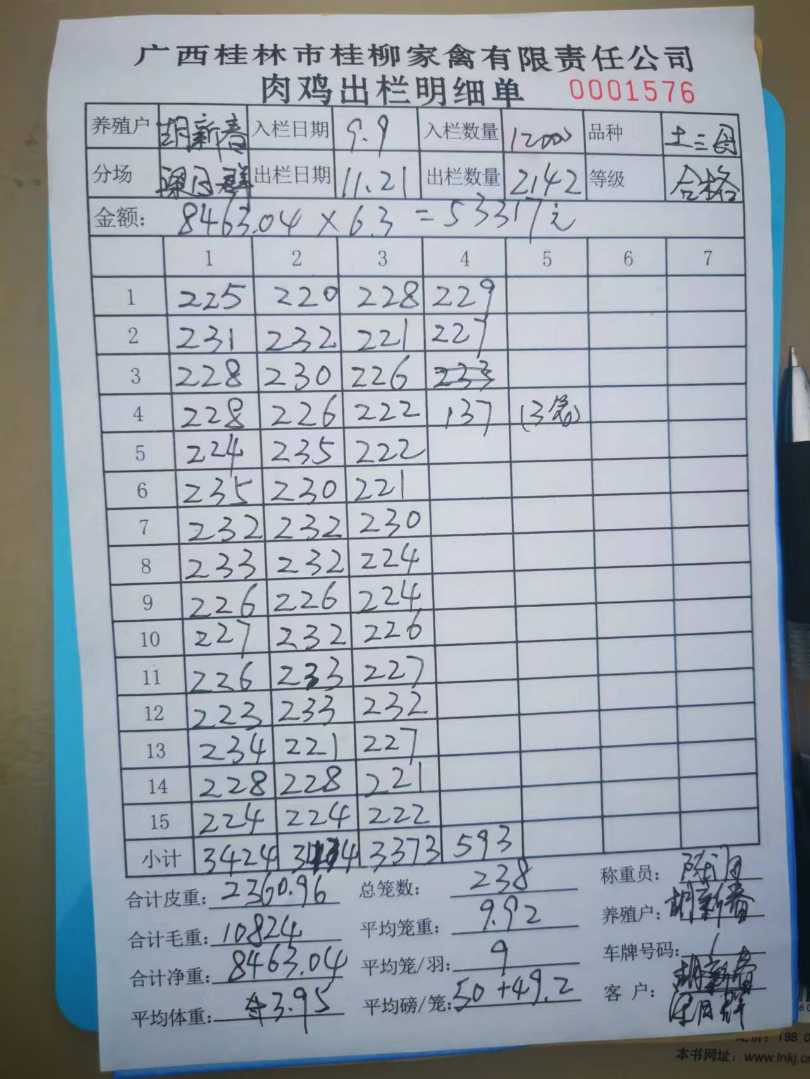 广西桂林市桂柳家禽有限责任公司
肉鸡出栏明细单 0001576
养殖户 胡新春 入栏日期 9.9 入栏数量 12000 品种 土三母
分场 出栏日期 11.21 出栏数量 2142 等级 合格
金额: 8463.04 × 6.3 = 53317元
1 2 3 4 5 6 7
1 225 220 228 229
2 231 232 221 227
3 228 230 226 233
4 228 226 222 137 (3笼)
5 224 235 222
6 235 230 221
7 232 232 230
8 233 232 224
9 226 226 224
10 227 232 226
11 226 233 227
12 223 233 232
13 234 221 227
14 228 228 221
15 224 224 222
小计 3424 3434 3373 593
合计皮重: 2360.96 总笼数: 238 称重员:
合计毛重: 10824 平均笼重: 9.92 养殖户: 胡新春
合计净重: 8463.04 平均笼/羽: 9 车牌号码: /
平均体重: 3.95 平均磅/笼: 50+49.2 客 户: 胡新春
本书网址: www.lnkj.cn